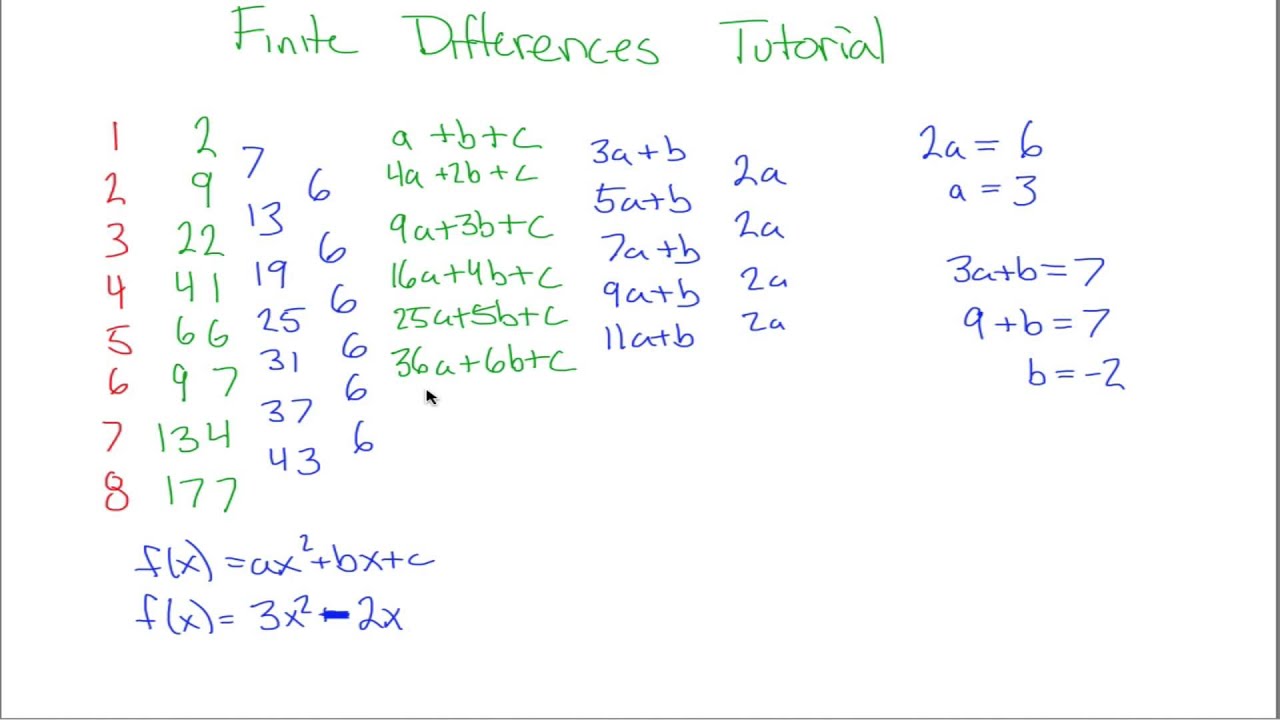 Finite Differences Tutorial
1 2 a + b + c 3a + b 2a = 6
7
2 9 4a + 2b + c 2a a = 3
6 5a + b
13
3 22 9a + 3b + c 2a
6 7a + b 3a + b = 7
19
4 41 16a + 4b + c 2a
6 9a + b
25
5 66 25a + 5b + c 2a 9 + b = 7
31 6 11a + b
6 97 36a + 6b + c b = -2
6
37
7 134
6
43
8 177
f(x) = ax² + bx + c
f(x) = 3x² - 2x